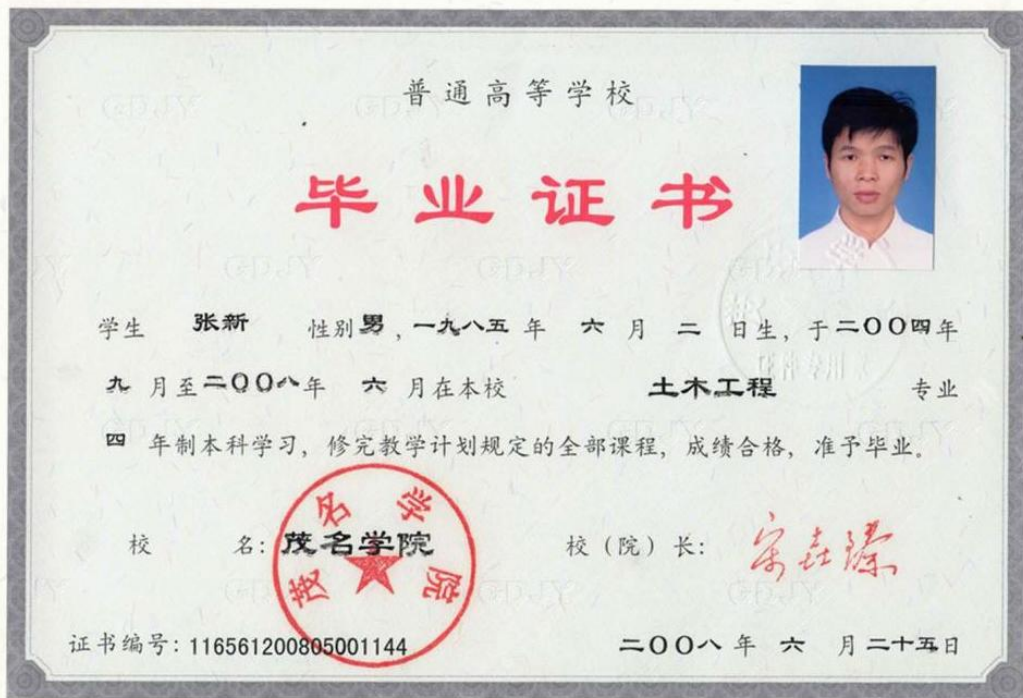 普通高等学校
毕业证书
学生 张新 性别男，一九八五年 六 月 二 日生，于二〇〇四年
九 月至二〇〇八年 六 月在本校 土木工程 专业
四 年制本科学习，修完教学计划规定的全部课程，成绩合格，准予毕业。
校 名：茂名学院 校（院）长：
茂名学院
证书编号：116561200805001144 二〇〇八年 六 月二十五日